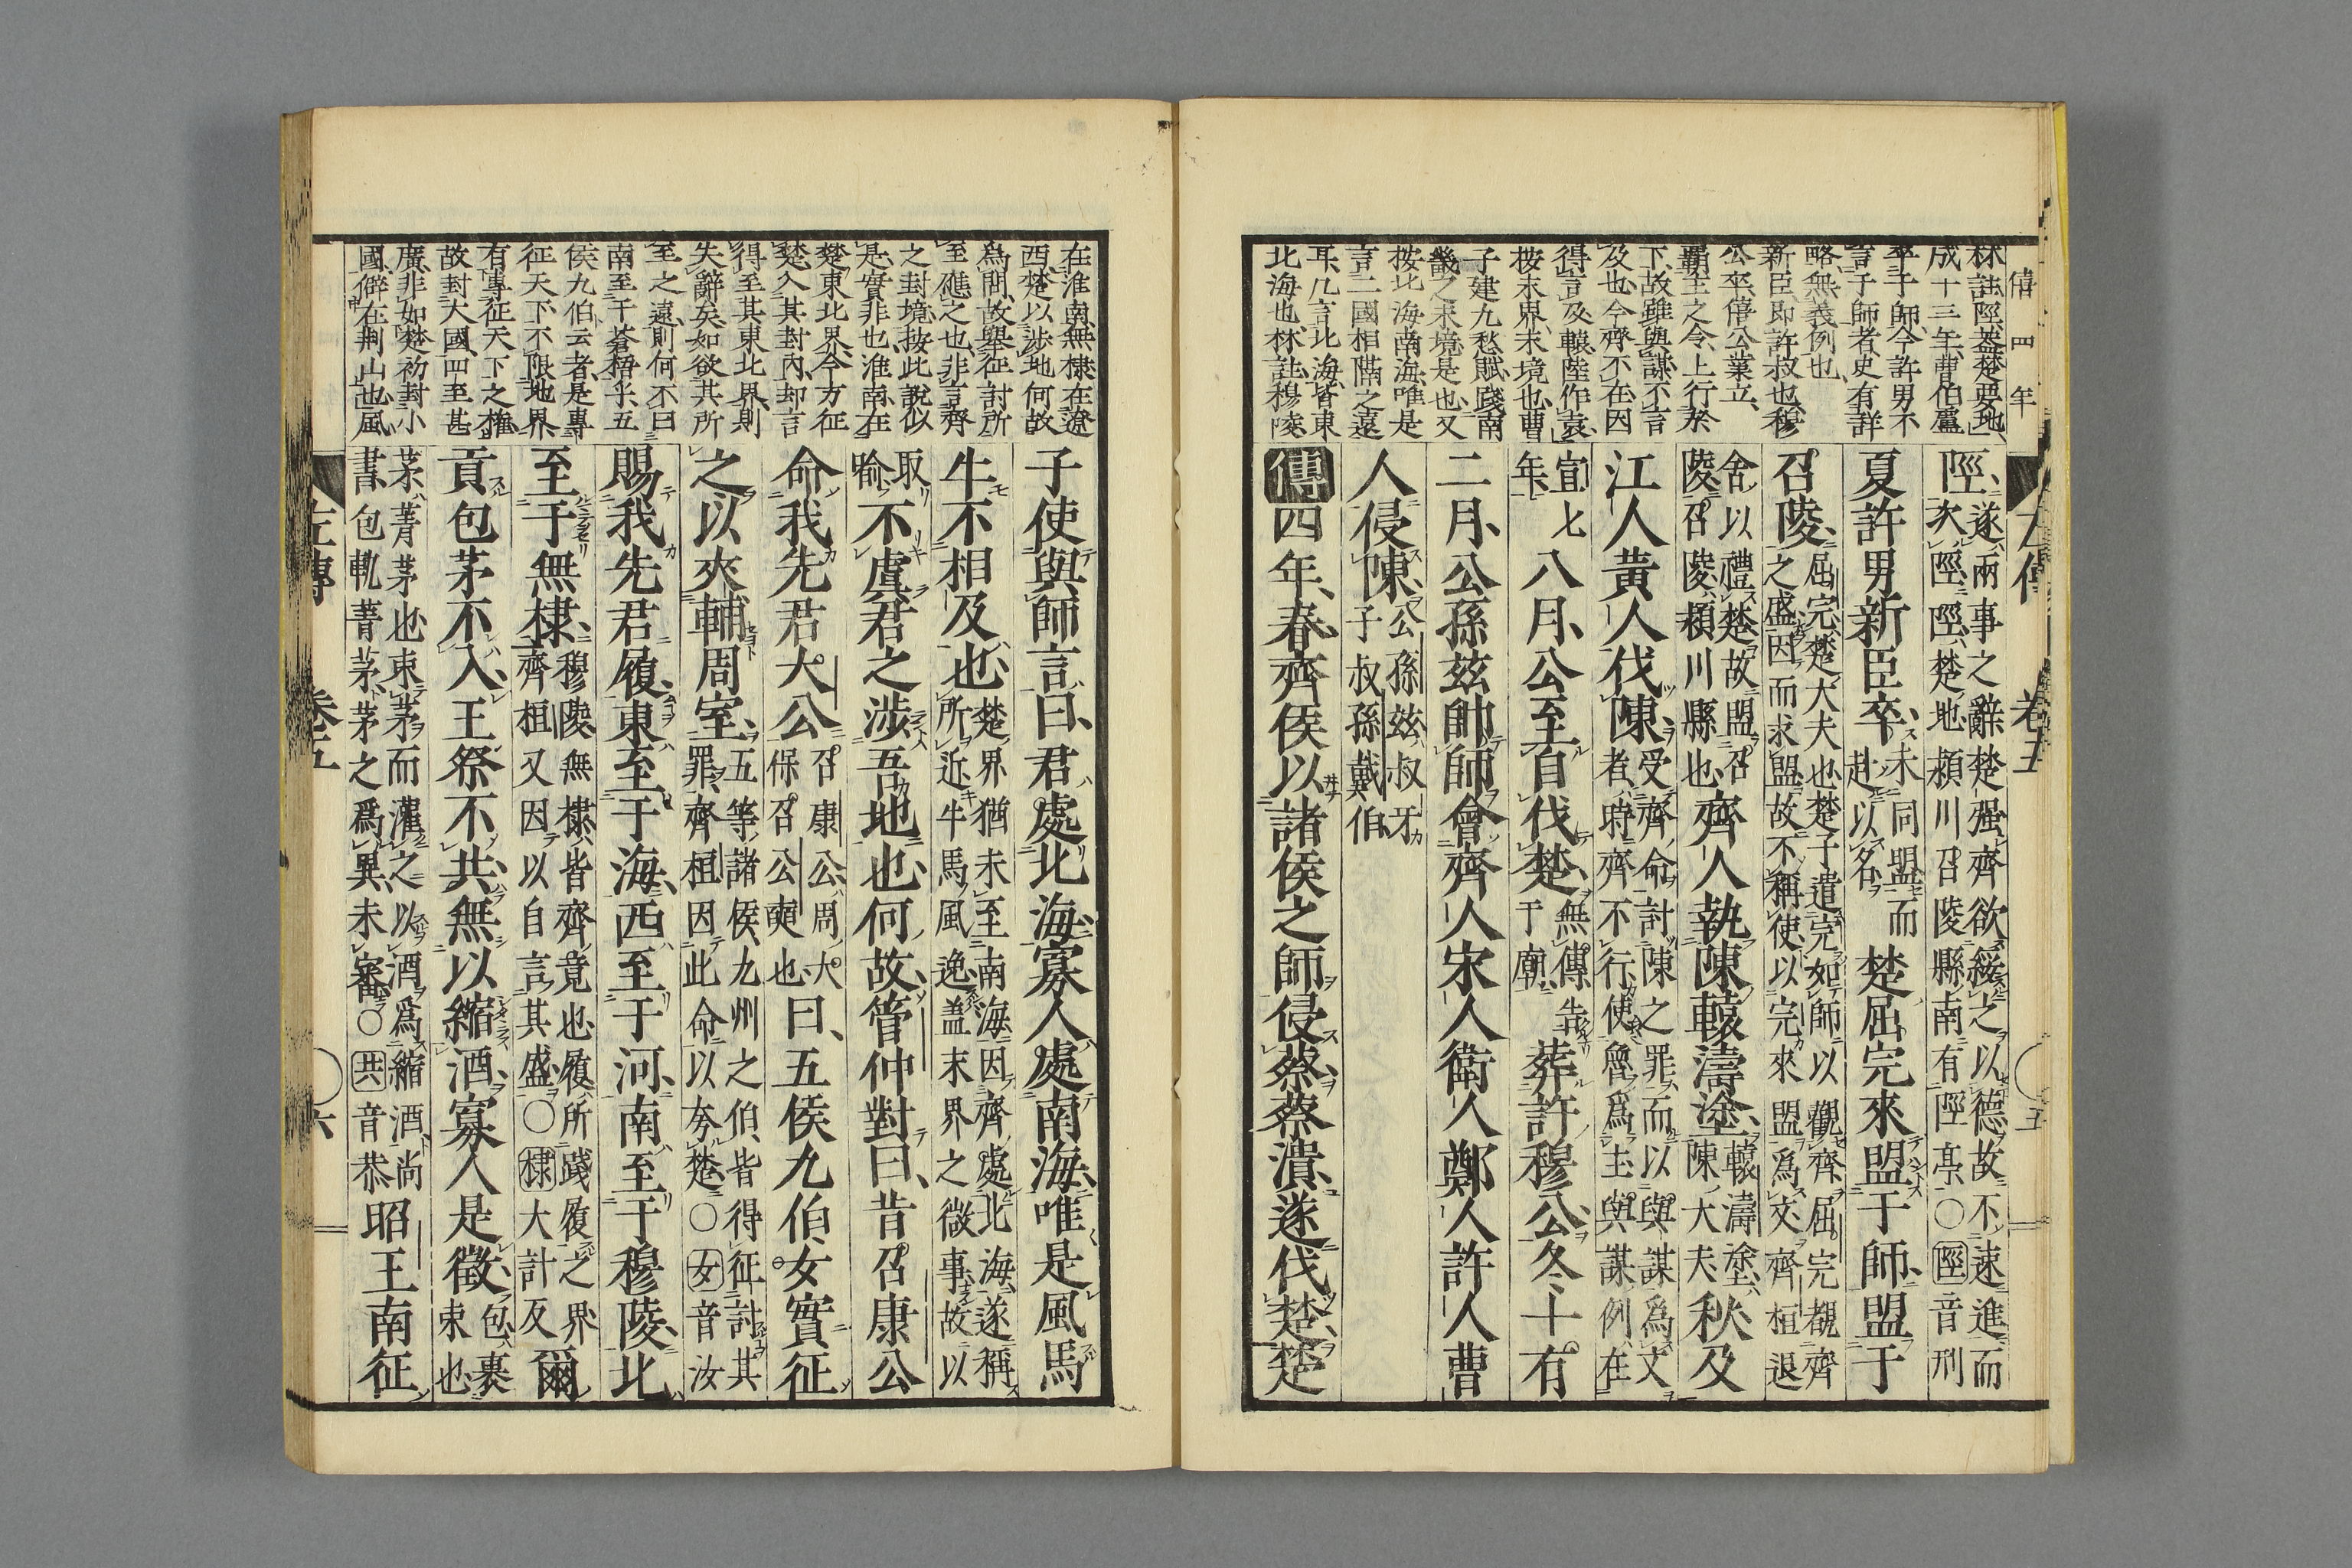 僖公四年
林註陘蓋楚要地
成十三年曹伯廬
卒于師今許男不
言于師者史有詳
略無義例也
新臣即許叔也穆
公卒僖公業立
霸主之令上行於
下故雖與謀不言
及也今齊不在因
得言及轅陸作袁
按末界末境也曹
子建九愁賦踐南
畿之末境是也又
按北海南海唯是
言二國相隔之遠
耳凡言北海皆東
北海也林註穆陵
左傳 卷五 五
陘遂兩事之辭楚强齊欲綏之以德故不速進而
次陘陘楚地潁川召陵縣南有陘亭〇陘音刑
夏許男新臣卒未同盟而赴以名楚屈完來盟于師盟于
召陵屈完楚大夫也楚子遣完如師以觀齊屈完覩齊
之盛因而求盟故不稱使以完來盟爲文齊桓退
舍以禮楚故盟召陵召陵潁川縣也齊人執陳轅濤塗轅濤塗陳大夫秋及
江人黃人伐陳受齊命討陳之罪而以與謀爲文
者時齊不行使魯爲主與謀例在
宣七年八月公至自伐楚無傳告于廟葬許穆公冬十有
二月公孫茲帥師會齊人宋人衛人鄭人許人曹
人侵陳公孫茲叔牙子叔孫戴伯
傳四年春齊侯以諸侯之師侵蔡蔡潰遂伐楚楚
在淮南無棣在遼
西楚以涉地何故
爲問故舉征討所
至應之也非言齊
之封境按此說似
是實非也淮南在
楚東北界今方征
楚入其封內却言
得至其東北界則
失辭矣如欲其所
至之遠則何不曰
南至于蒼梧乎五
侯九伯云者是專
征天下不限地界
有專征天下之權
故封大國四至甚
廣非如楚初封小
國僻在荆山也風
子使與師言曰君處北海寡人處南海唯是風馬
牛不相及也楚界猶未至南海因齊處北海遂稱
所近牛馬風逸蓋末界之微事故以
取喩不虞君之涉吾地也何故管仲對曰昔召康公
命我先君大公召康公周大保召公奭也曰五侯九伯女實征
之以夾輔周室五等諸侯九州之伯皆得征討其
罪齊桓因此命以夸楚〇女音汝
賜我先君履東至于海西至于河南至于穆陵北
至于無棣穆陵無棣皆齊竟也履所踐履之界
齊桓又因以自言其盛〇棣大計反爾
貢包茅不入王祭不共無以縮酒寡人是徵包裹束也
茅菁茅也束茅而灌之以酒爲縮酒尚
書包軌菁茅茅之爲異未審〇共音恭昭王南征
左傳 卷五 六